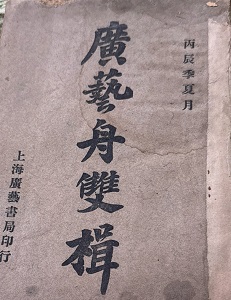 丙辰季夏月
廣藝舟雙楫
上海廣藝書局印行